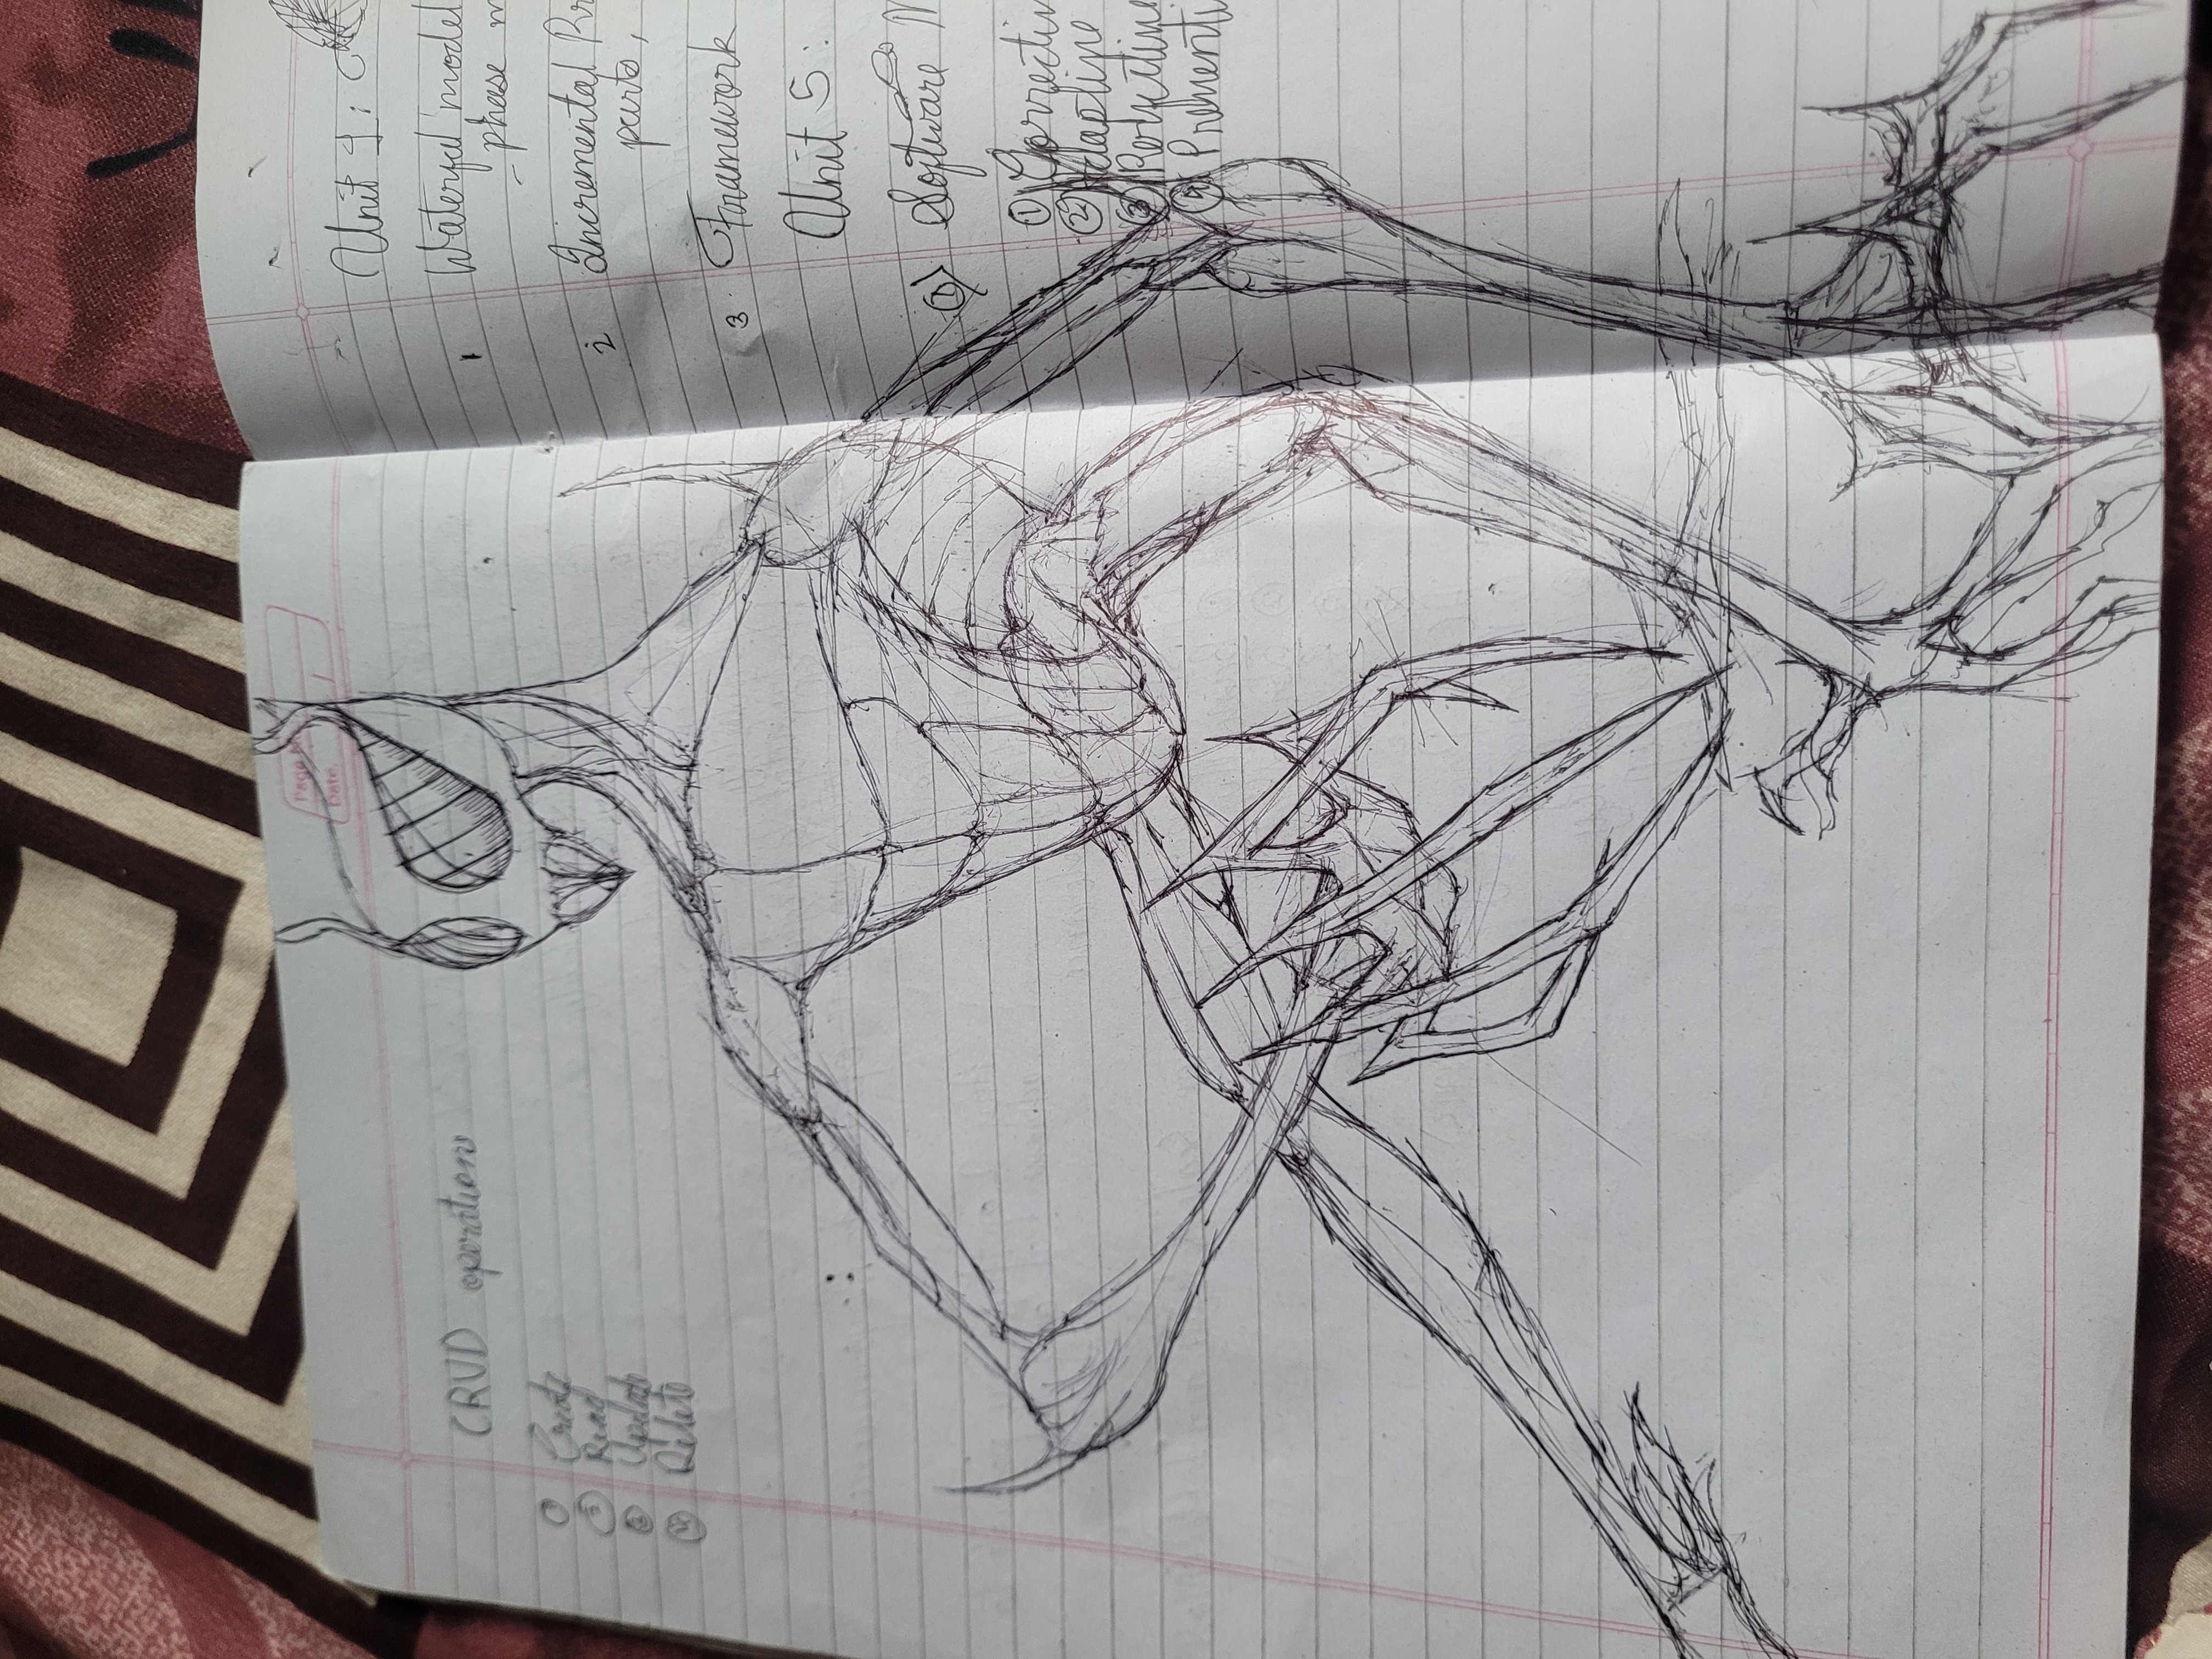 Page No.
Date.
CRUD operations
① Create
② Read
③ Update
④ Delete
Unit 1:
1 Waterfal model
- phase
2 Incremental
parts,
3. Framework
Unit 5:
Software
① Correctin
② Adaptine
③
④ Prementi